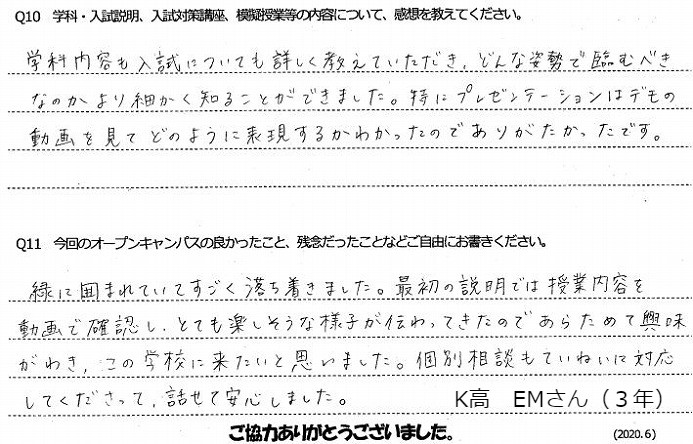 Q10 学科・入試説明、入試対策講座、模擬授業等の内容について、感想を教えてください。
学科内容も入試についても詳しく教えていただき、どんな姿勢で臨むべき
なのかより細かく知ることができました。特にプレゼンテーションはデモの
動画を見てどのように表現するかわかったのでありがたかったです。
Q11 今回のオープンキャンパスの良かったこと、残念だったことなどご自由にお書きください。
緑に囲まれていてすごく落ち着きました。最初の説明では授業内容を
動画で確認し、とても楽しそうな様子が伝わってきたのであらためて興味
がわき、この学校に来たいと思いました。個別相談もていねいに対応
してくださって、話せて安心しました。 K高 EMさん（３年）
ご協力ありがとうございました。 (2020.6)